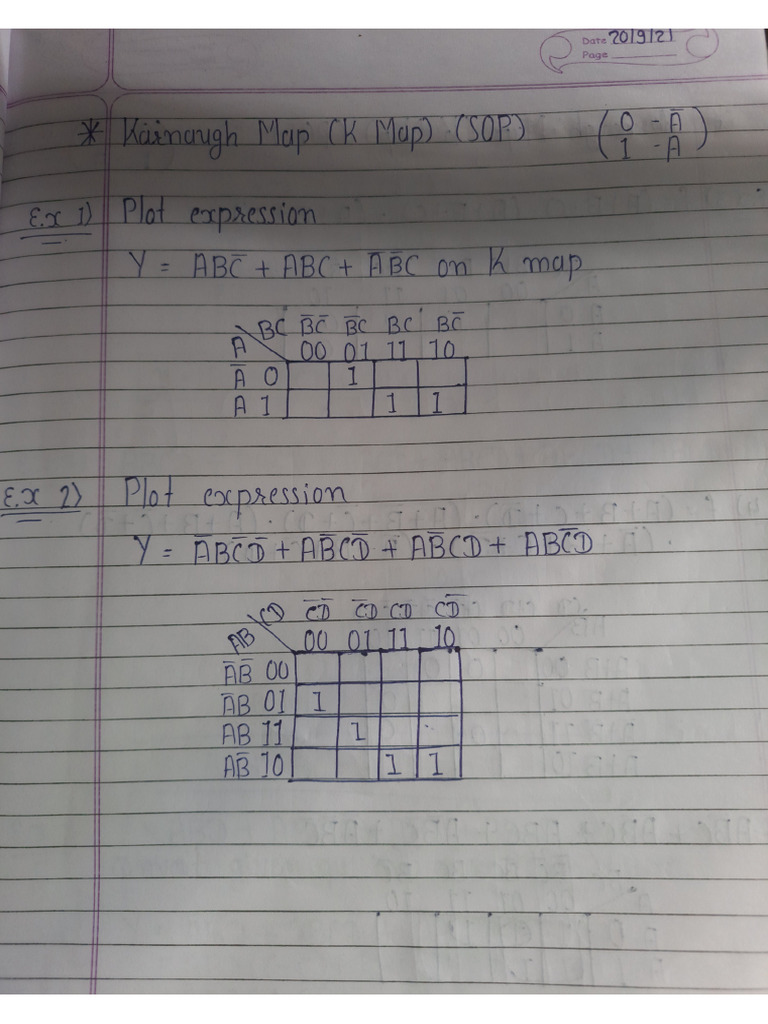 Date 20/9/21
Page
* Kairnaugh Map (K Map) (SOP) (0 - A̅
1 - A)
E.x 1) Plot expression
Y = ABC̅ + ABC + A̅B̅C on K map
A \ BC B̅C̅ B̅C BC BC̅
00 01 11 10
A̅ 0 1
A 1 1 1
E.x 2) Plot expression
Y = A̅BC̅D̅ + AB̅CD̅ + AB̅CD + ABC̅D
AB \ CD C̅D̅ C̅D CD CD̅
00 01 11 10
A̅B̅ 00
A̅B 01 1
AB 11 1
AB̅ 10 1 1